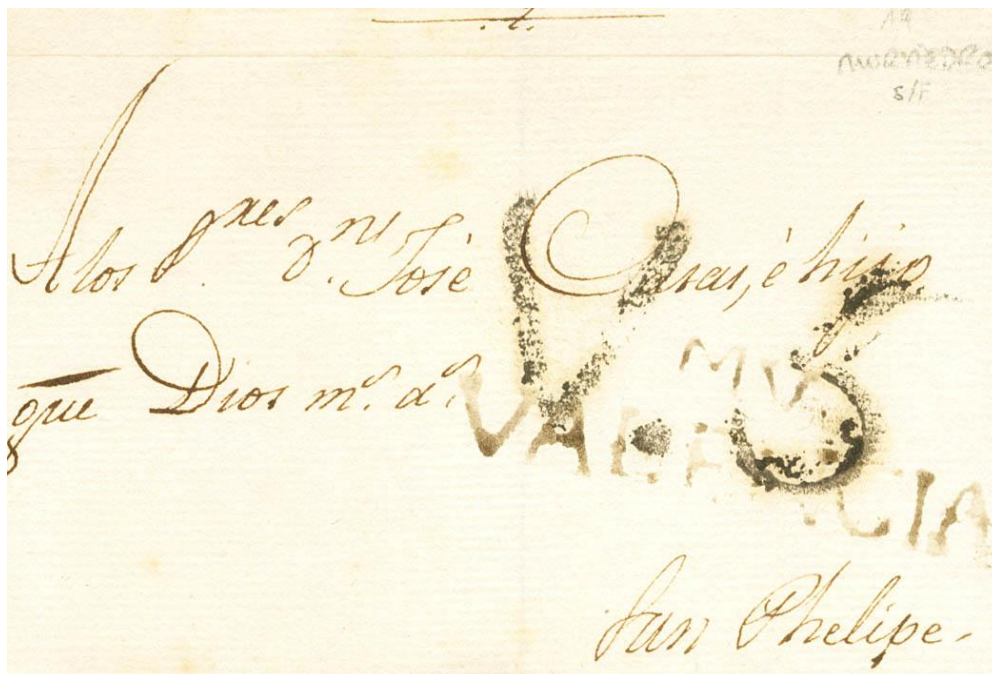 19
MURVIEDRO
S/F
A los S.res D.ns José Casas, è hijo
que Dios m.s a.s
V.6
MV
VALENCIA
San Phelipe.